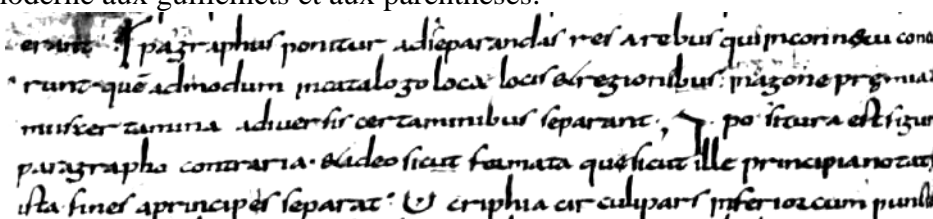 moderne aux guillemets et aux parenthèses.
erant. paragraphus ponitur adseparandas res arebus qui inconnexu conc
runt quē admodum incatalogo loca locis & regionibus. inagone premia
muixer tamina adiversis certaminibus separant. positura est figur
paragrapho contraria. & ideo sicut formata que sicut ille principia notat
ista fines aprincipiis separat. criphia cir culi pars inferior cum punct